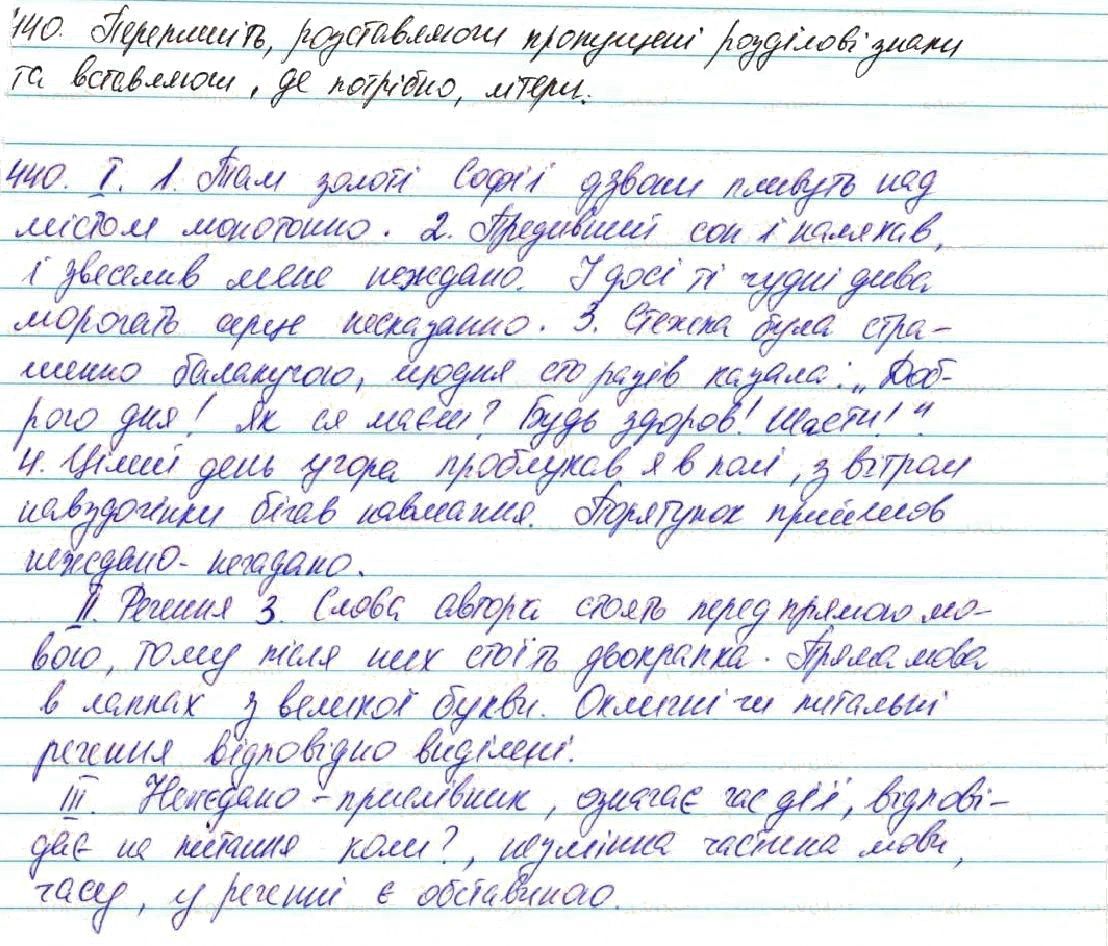 440. Перепишіть, розставляючи пропущені розділові знаки
та вставляючи, де потрібно, літери.
440. І. 1. Там золоті Софії дзвони пливуть над
містом монотонно. 2. Предивний сон і налякав,
і звеселив мене неждано. І досі ті чудні дива
морочать серце несказанно. 3. Стежка була стра-
шенно балакучою, щодня сто разів казала: „Доб-
рого дня! Як ся маєш? Будь здоров! Щасти!"
4. Цілий день учора проблукав я в полі, з вітром
навздогінки бігав навмання. Порятунок прийшов
неждано-негадано.
ІІ. Речення 3. Слова автора стоять перед прямою мо-
вою, тому після них стоїть двокрапка. Пряма мова
в лапках з великої букви. Окличні чи питальні
речення відповідно виділені.
ІІІ. Неждано – прислівник, означає час дії, відпові-
дає на питання коли?, незмінна частина мови,
часу, у реченні є обставиною.